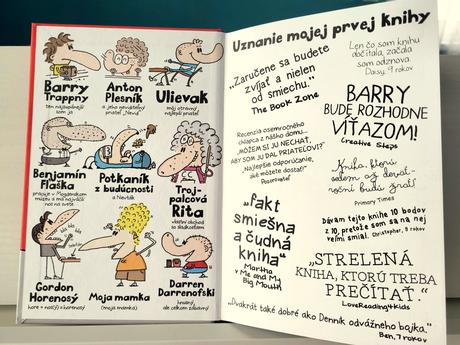 Barry
Trappny
ten najúspešnejší
som ja
Anton
Plesník
a jeho neviditeľný
priateľ „Nevid“
Ulievak
môj otravný,
najlepší priateľ
Benjamín
Flaška
pracuje v Mogdánskom
múzeu a má najväčší
nos na svete
Potkaník
z budúcnosti
a Nevtšík
Troj-
palcová
Rita
vlastní obchod
so sladkosťami
Gordon
Horenosý
hore + nos(ý) = horenosý
Moja mamka
(moja mamka)
Darren
Darrenofski
hrubý,
ale celkom zábavný
Uznanie mojej prvej knihy
„Zaručene sa budete
zvíjať a nielen
od smiechu.“
The Book Zone
Len čo som knihu
dočítala, začala
som odznova.
Daisy, 9 rokov
Recenzia osemročného
chlapca z nášho domu...
„MÔŽEM SI JU NECHAŤ,
ABY SOM JU DAL PRIATEĽOVI?“
„Najlepšie odporúčanie,
aké môžete dostať!“
Pozorovateľ
BARRY
BUDE ROZHODNE
VÍŤAZOM!
Creative Steps
Kniha, ktorú
sedem až devät-
roční budú žrať!
Primary Times
„Fakt
smiešna
a čudná
kniha“
Martha
v Me and My
Big Mouth
Dávam tejto knihe 10 bodov
z 10, pretože som sa na nej
veľmi smial. Christopher, 9 rokov
„STRELENÁ
KNIHA, KTORÚ TREBA
PREČÍTAŤ.“
LoveReading4kids
„Dvakrát také dobré ako Denník odvážneho bojka.“
Ben, 7 rokov